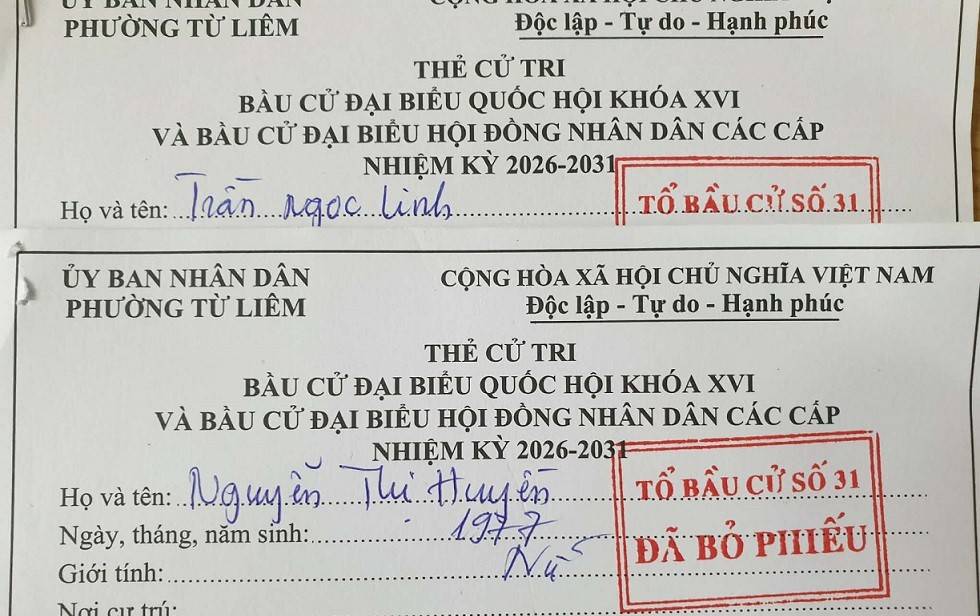 ỦY BAN NHÂN DÂN
PHƯỜNG TỪ LIÊM
CỘNG HÒA XÃ HỘI CHỦ NGHĨA
Độc lập - Tự do - Hạnh phúc
THẺ CỬ TRI
BẦU CỬ ĐẠI BIỂU QUỐC HỘI KHÓA XVI
VÀ BẦU CỬ ĐẠI BIỂU HỘI ĐỒNG NHÂN DÂN CÁC CẤP
NHIỆM KỲ 2026-2031
Họ và tên: Trần Ngọc Linh
TỔ BẦU CỬ SỐ 31
ỦY BAN NHÂN DÂN
PHƯỜNG TỪ LIÊM
CỘNG HÒA XÃ HỘI CHỦ NGHĨA VIỆT NAM
Độc lập - Tự do - Hạnh phúc
THẺ CỬ TRI
BẦU CỬ ĐẠI BIỂU QUỐC HỘI KHÓA XVI
VÀ BẦU CỬ ĐẠI BIỂU HỘI ĐỒNG NHÂN DÂN CÁC CẤP
NHIỆM KỲ 2026-2031
Họ và tên: Nguyễn Thị Huyền
TỔ BẦU CỬ SỐ 31
Ngày, tháng, năm sinh: 1977
ĐÃ BỎ PHIẾU
Giới tính: Nữ
Nơi cư trú: